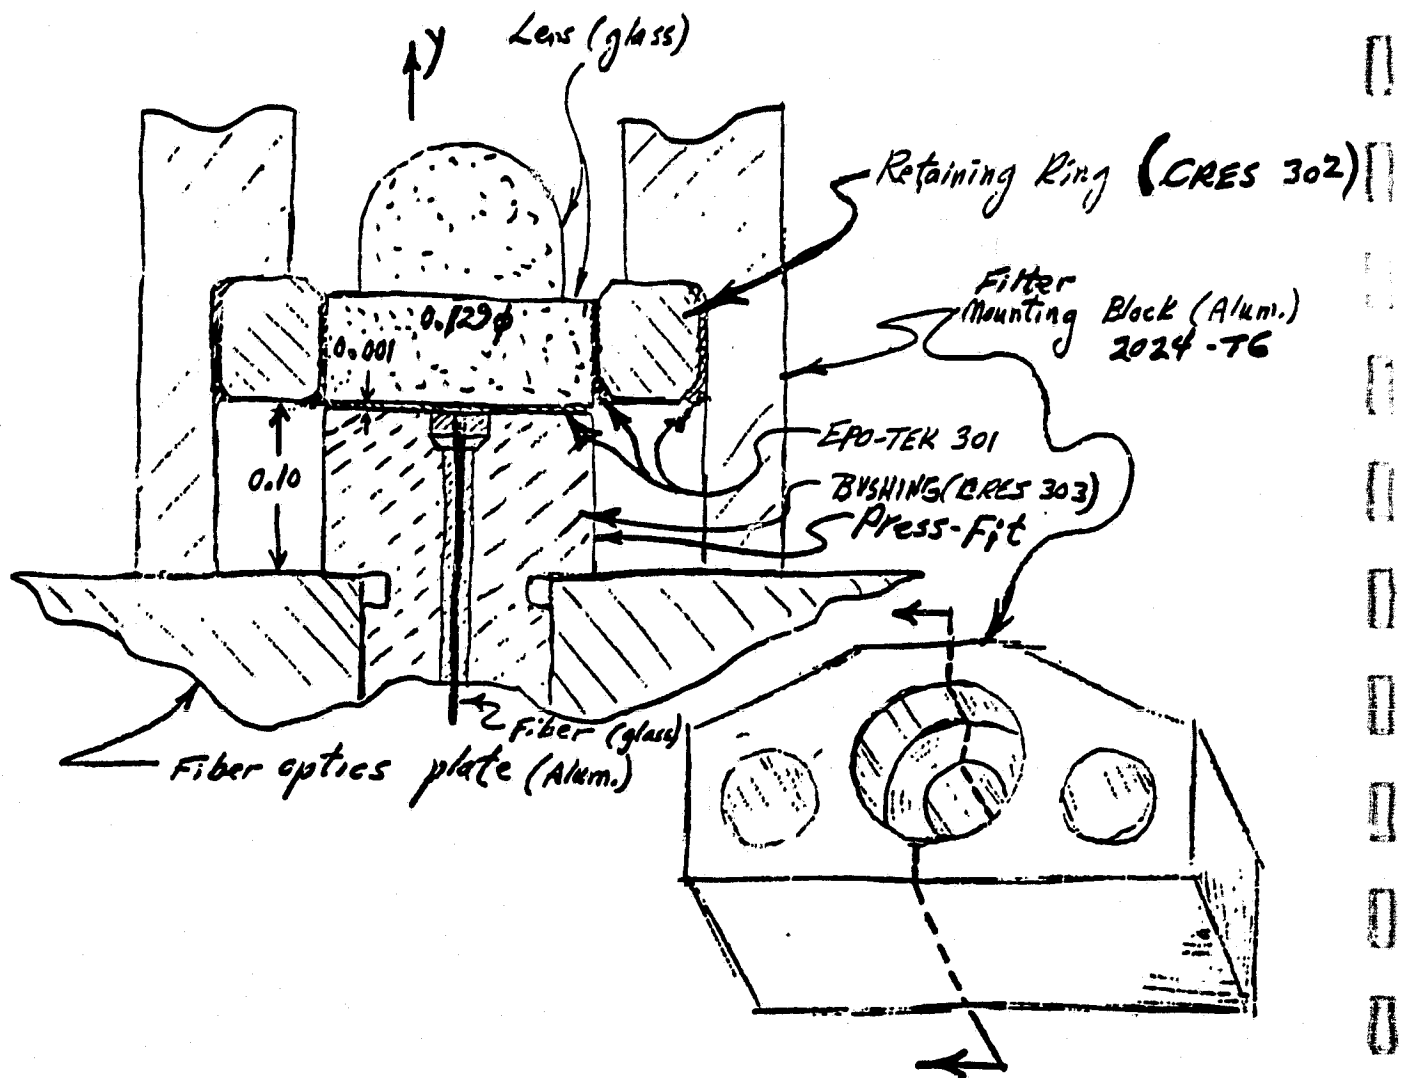 y
Lens (glass)
Retaining Ring (CRES 302)
Filter
Mounting Block (Alum.)
2024-T6
0.129ϕ
0.001
0.10
EPO-TEK 301
BUSHING (CRES 303)
Press-Fit
Fiber (glass)
Fiber optics plate (Alum.)